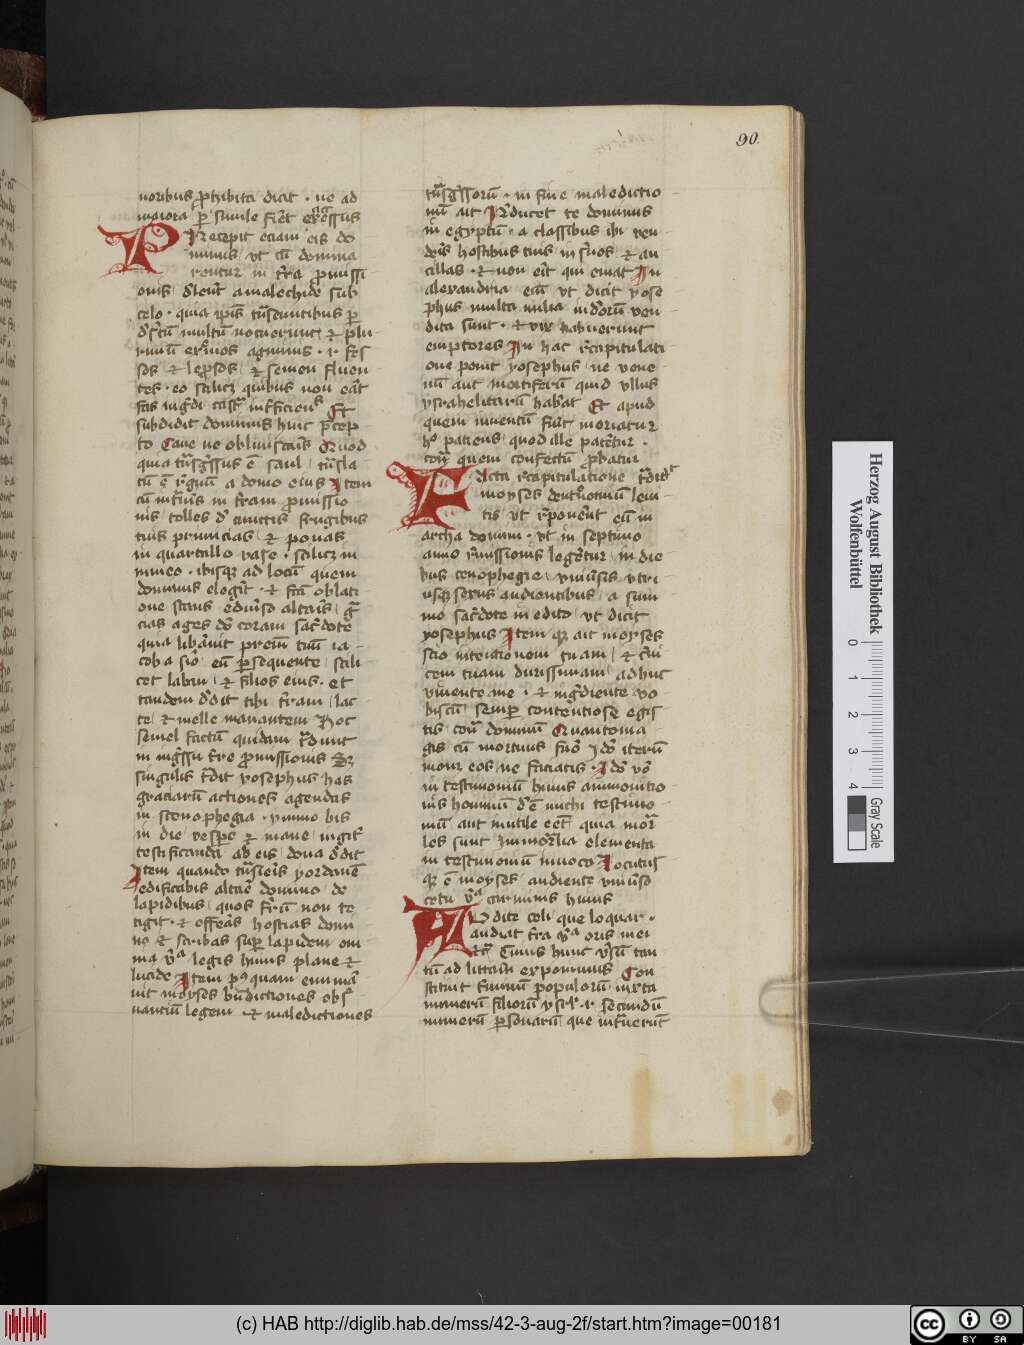 90.
noribus prohibita dicit · ne ad
maiora per simile fieret
Precepit eciam eis do
minus ut cum domina
rentur in terra promissi
onis delerent amalechide sub
celo · quia ipsis transeuntibus per
desertum multum nocuerunt et plu
rimum
sos et leprosos et semen fluen
tes · eo scilicet quibus non erat
fas ingredi castra Et
subdidit dominus huic precep
to Caue ne obliuiscaris Quod
quia transgressus est saul transla
tum est regnum a domo eius Item
cum intraueris in terram promissio
nis tolles de cunctis frugibus
tuis primicias et ponas
in quartallo vase · scilicet in
mineo · ibisque ad locum quem
dominus elegerit · et facta oblati
one stans e diuerso altaris gra
cias ages deo coram sacerdote
quia liberauit patrem tuum ia
cob a syro eum persequente scili
cet laban et filios eius · et
tandem dedit tibi terram lac
te et melle manantem Hoc
semel factum quidam tradunt
in ingressu terre promissionis Sed
singulis tradit yosephus has
graciarum actiones agendas
in scenophegia · ymmo bis
in die vespere et mane
testificanda ab eis dona dedit
Item quando transieris yordanem
edificabis altare domino de
lapidibus quos ferrum non te
tigit · et offeras hostias domi
no et scribas super lapidem om
nia verba legis huius plane et
lucide Item postquam enumera
uit moyses benedictiones obser
uancium legem et maledictiones
transgressorum · in fine maledictio
num ait Reducet te dominus
in egyptum · a classibus ibi ven
deris hostibus tuis in seruos et an
cillas · et non erit qui emat In
alexandria enim ut dicit yose
phus multa milia iudeorum ven
dita sunt · et vix habuerunt
emptores In hac recapitulati
one ponit yosephus ne vene
num aut mortiferum quid ullus
ysrahelitarum habeat Et apud
quem inuentum fuerit moriatur
hoc patiens quod ille pateretur ·
contra quem confectum probatur
Facta recapitulatione tradidit
moyses deutronomium leui
tis ut reponerent eum in
archa domini · ut in septimo
anno remissionis legeretur in die
bus cenophegie vniuersis vtri
usque sexus audientibus a sum
mo sacerdote in edito ut dicit
yosephus Item quod ait moyses
scio intencionem tuam et cerui
cem tuam durissimam adhuc
viuente me · et ingrediente vo
biscum semper contentiose egis
tis contra dominum Quantoma
gis cum mortuus fuero Ideo iterum
moneo eos ne faciatis · Ideo vero
in testimonium huius ammonitio
nis hominum deest michi testimo
nium aut inutile esset quia mor
les sunt Immortalia elementa
in testimonium inuoco Locutus
que est moyses audiente vniuerso
cetu verba carminis huius
Audite celi que loquar ·
audiat terra verba oris mei
etc Cuius hunc versum tan
tum ad litteram exponimus Con
stituit terminum populorum iuxta
numerum filiorum ysrael · id est secundum
numerum personarum que intrauerunt
Herzog August Bibliothek
Wolfenbüttel
0 1 2 3 4
Gray Scale
(c) HAB http://diglib.hab.de/mss/42-3-aug-2f/start.htm?image=00181
cc BY SA